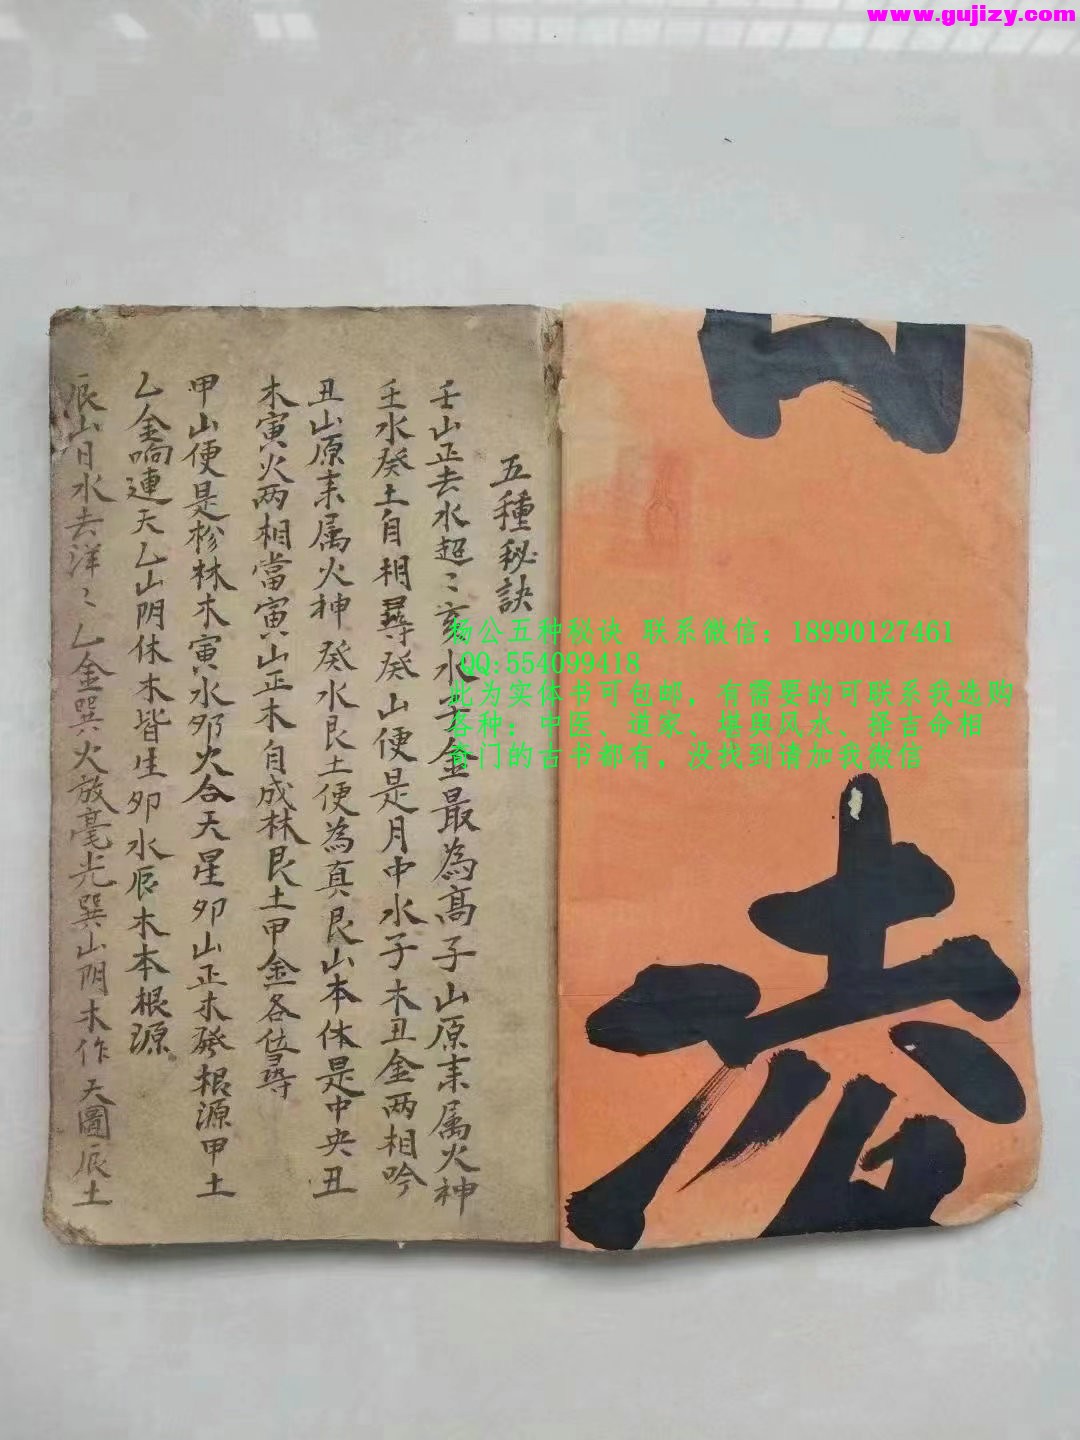 www.gujizy.com
杨公五种秘诀 联系微信：18990127461
QQ:554099418
此为实体书可包邮，有需要的可联系我选购
各种：中医、道家、堪舆风水、择吉命相
奇门的古书都有，没找到请加我微信
五種秘訣
壬山正去水超〻亥水壬金最為高子山原来属火神
壬水癸土自相尋癸山便是月中水子木丑金两相吟
丑山原来属火神 癸水艮土便為真艮山本体是中央丑
木寅火两相當寅山正木自成林艮土甲金各位尋
甲山便是松林木寅水夘火合天星夘山正木發根源甲土
乙金响連天乙山阴休木皆生夘水辰木本根源
辰山日水去洋〻乙金巽火放毫光巽山阴木作天圖辰土